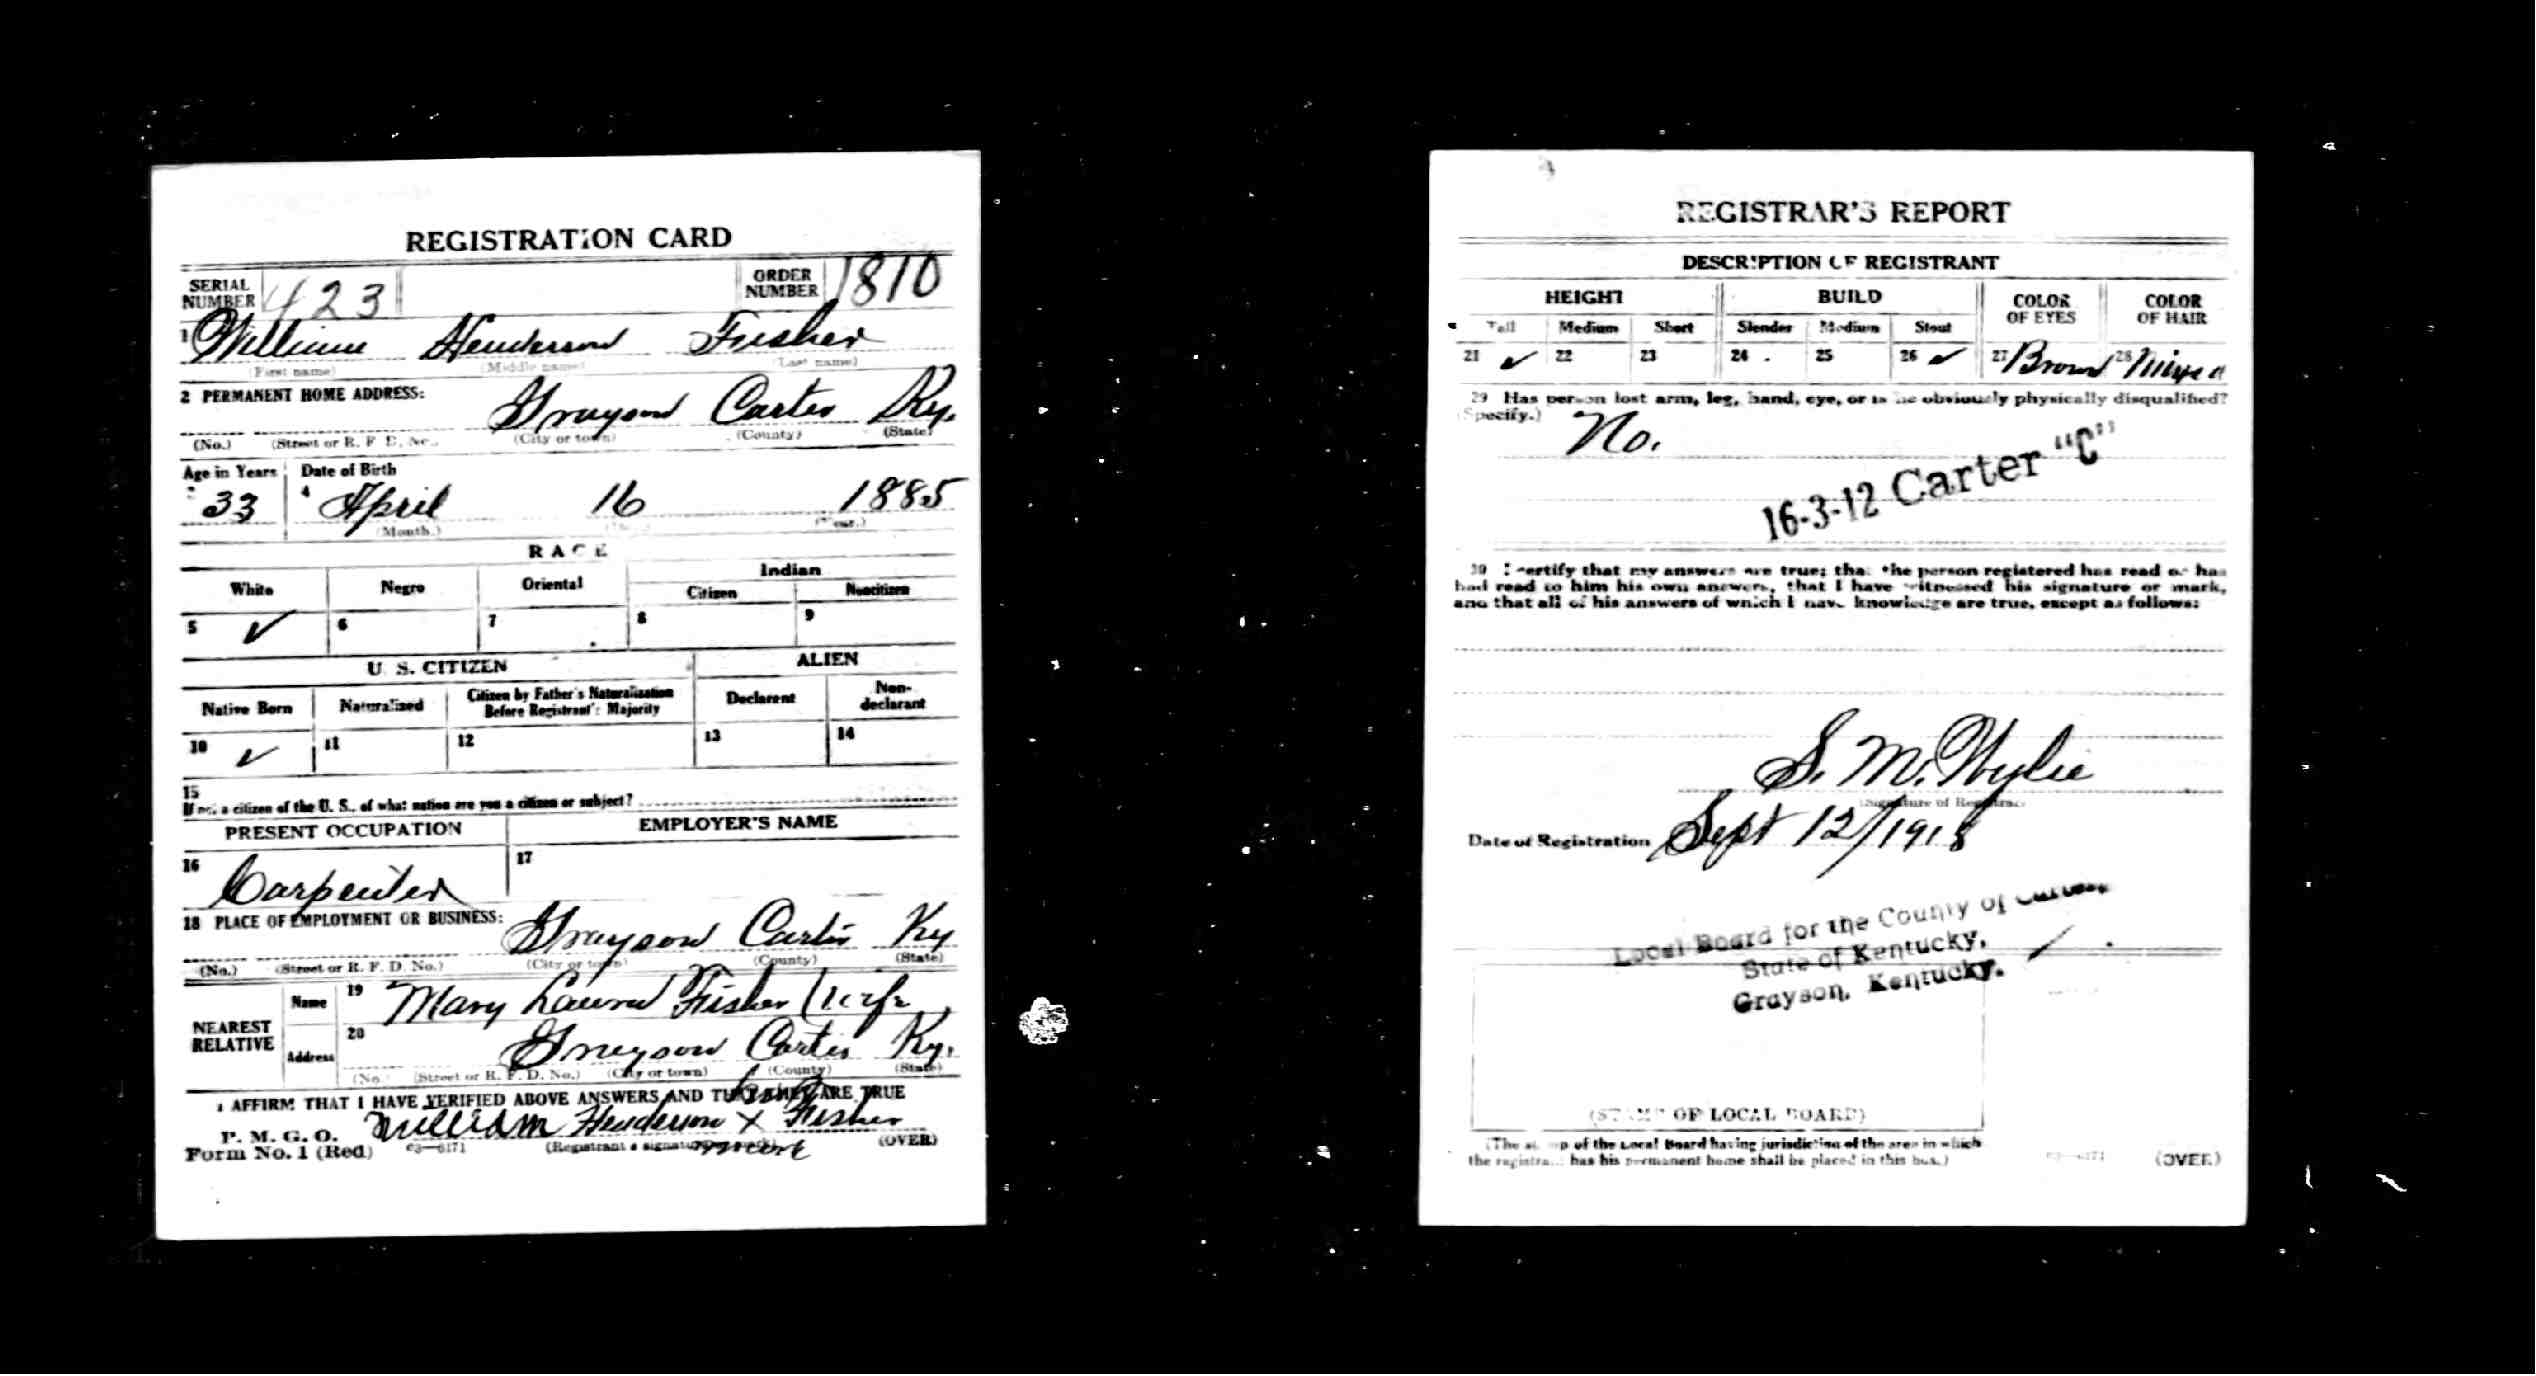 REGISTRATION CARD
SERIAL NUMBER 423 ORDER NUMBER 1810
1 William Henderson Fisher
(First name) (Middle name) (Last name)
2 PERMANENT HOME ADDRESS: Grayson Carter Ky.
(No.) (Street or R. F. D. No.) (City or town) (County) (State)
Age in Years Date of Birth
33 4 April 16 1885
(Month.) (Year.)
RACE
White Negro Oriental Indian
Citizen Noncitizen
5 ✓ 6 7 8 9
U. S. CITIZEN ALIEN
Native Born Naturalized Citizen by Father's Naturalization Before Registrant's Majority Declarent Non-declarant
10 ✓ 11 12 13 14
15
If not a citizen of the U. S., of what nation are you a citizen or subject?
PRESENT OCCUPATION EMPLOYER'S NAME
16 Carpenter 17
18 PLACE OF EMPLOYMENT OR BUSINESS: Grayson Carter Ky
(No.) (Street or R. F. D. No.) (City or town) (County) (State)
NEAREST RELATIVE Name 19 Mary Laura Fisher (wife
Address 20 Grayson Carter Ky.
(No.) (Street or R. F. D. No.) (City or town) (County) (State)
I AFFIRM THAT I HAVE VERIFIED ABOVE ANSWERS AND THAT THEY ARE TRUE
his
P. M. G. O. William Henderson X Fisher
Form No. 1 (Red) 03—6171 (Registrant's signature or mark) mark (OVER)
REGISTRAR'S REPORT
DESCRIPTION OF REGISTRANT
HEIGHT BUILD COLOR OF EYES COLOR OF HAIR
Tall Medium Short Slender Medium Stout
21 ✓ 22 23 24 25 26 ✓ 27 Brown 28 Mixed
29 Has person lost arm, leg, hand, eye, or is he obviously physically disqualified?
(Specify.) No.
16-3-12 Carter "C"
30 I certify that my answers are true; that the person registered has read or has
had read to him his own answers, that I have witnessed his signature or mark,
and that all of his answers of which I have knowledge are true, except as follows:
S. M. Wylie
(Signature of Registrar)
Date of Registration Sept 12/1918
Local Board for the County of Carter,
State of Kentucky,
Grayson, Kentucky.
(STAMP OF LOCAL BOARD)
(The stamp of the Local Board having jurisdiction of the area in which
the registrant has his permanent home shall be placed in this box.)
03—6171 (OVER)